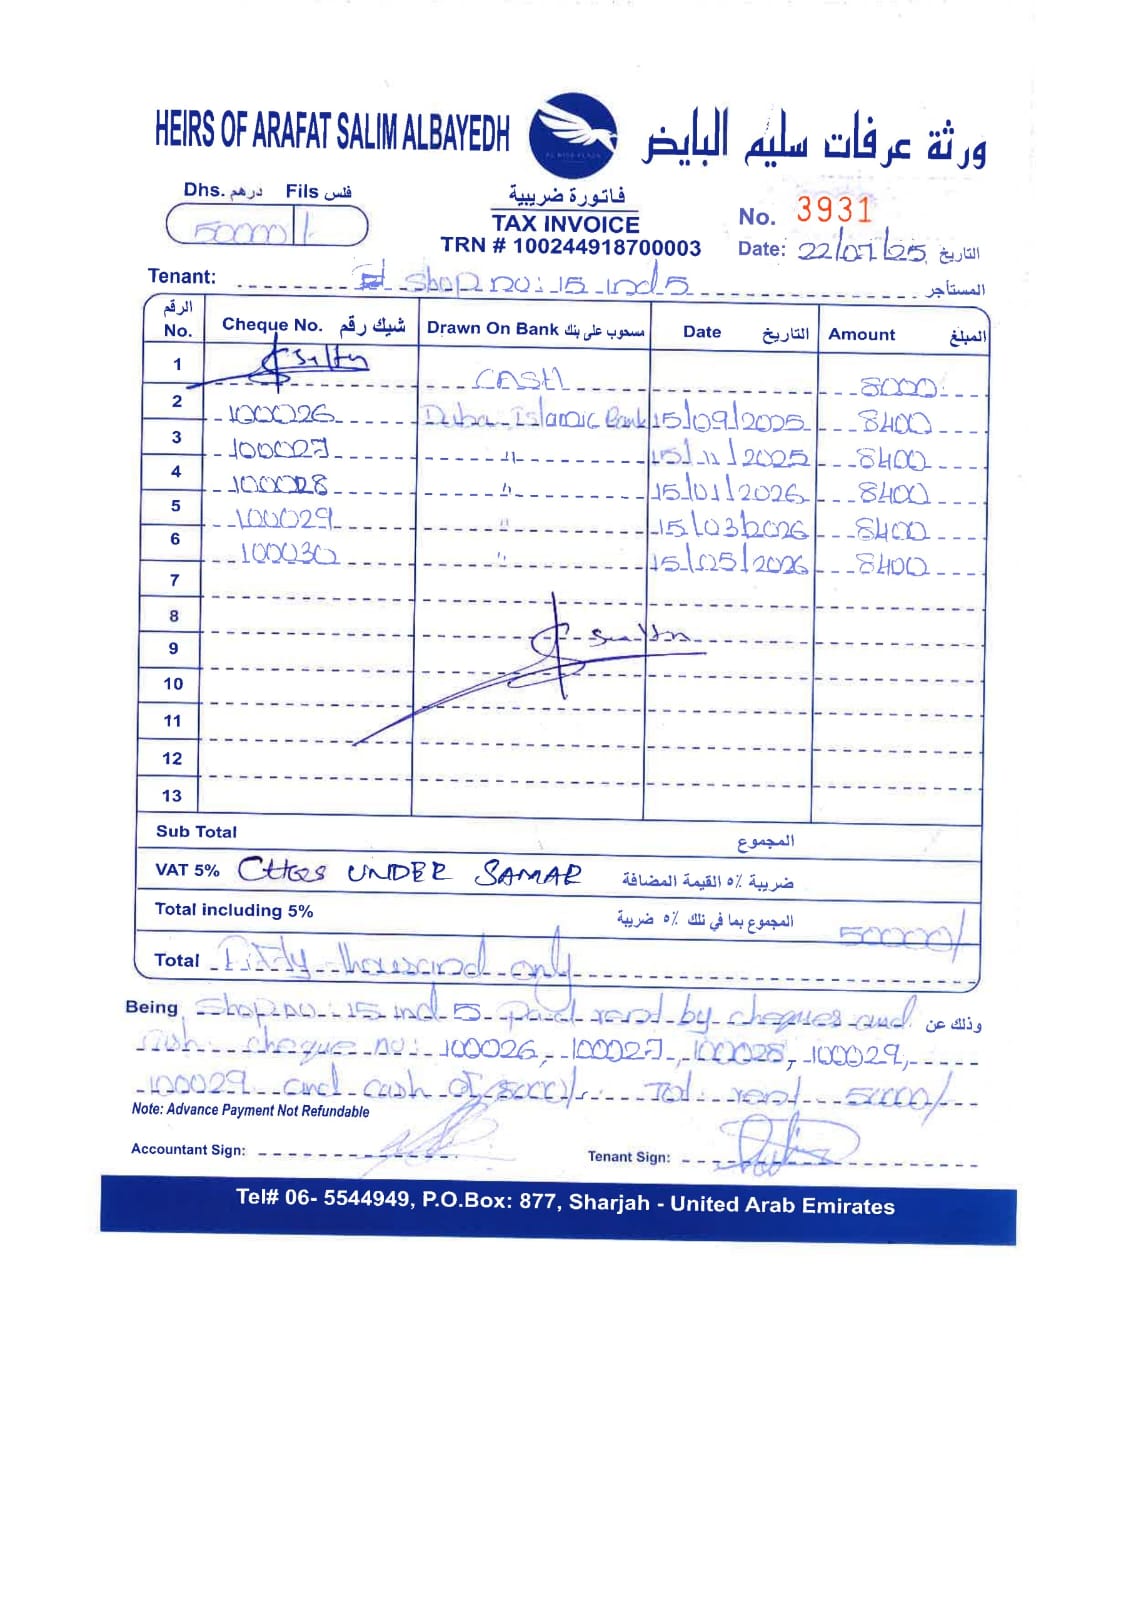 HEIRS OF ARAFAT SALIM ALBAYEDH
ورثة عرفات سليم البايض
Dhs. درهم Fils فلس
50000/
فاتورة ضريبية
TAX INVOICE
TRN # 100244918700003
No. 3931
Date: 22/07/25 التاريخ
Tenant: Shop no: 15 ind 5 المستأجر
الرقم No. Cheque No. شيك رقم Drawn On Bank مسحوب على بنك Date التاريخ Amount المبلغ
1 CASH 8000
2 100026 Dubai Islamic Bank 15/09/2025 8400
3 100027 " 15/11/2025 8400
4 100028 " 15/01/2026 8400
5 100029 " 15/03/2026 8400
6 100030 " 15/05/2026 8400
7
8
9
10
11
12
13
Sub Total المجموع
VAT 5% UNDER SAMAR ضريبة ٥٪ القيمة المضافة
Total including 5% المجموع بما في تلك ٥٪ ضريبة 50000/
Total Fifty thousand only
Being Shop no: 15 ind 5 paid rent by cheques and وذلك عن
cash. cheque no: 100026, 100027, 100028, 100029,
100029 and cash of 8000/. Tot: rent 50000/
Note: Advance Payment Not Refundable
Accountant Sign:
Tenant Sign:
Tel# 06- 5544949, P.O.Box: 877, Sharjah - United Arab Emirates